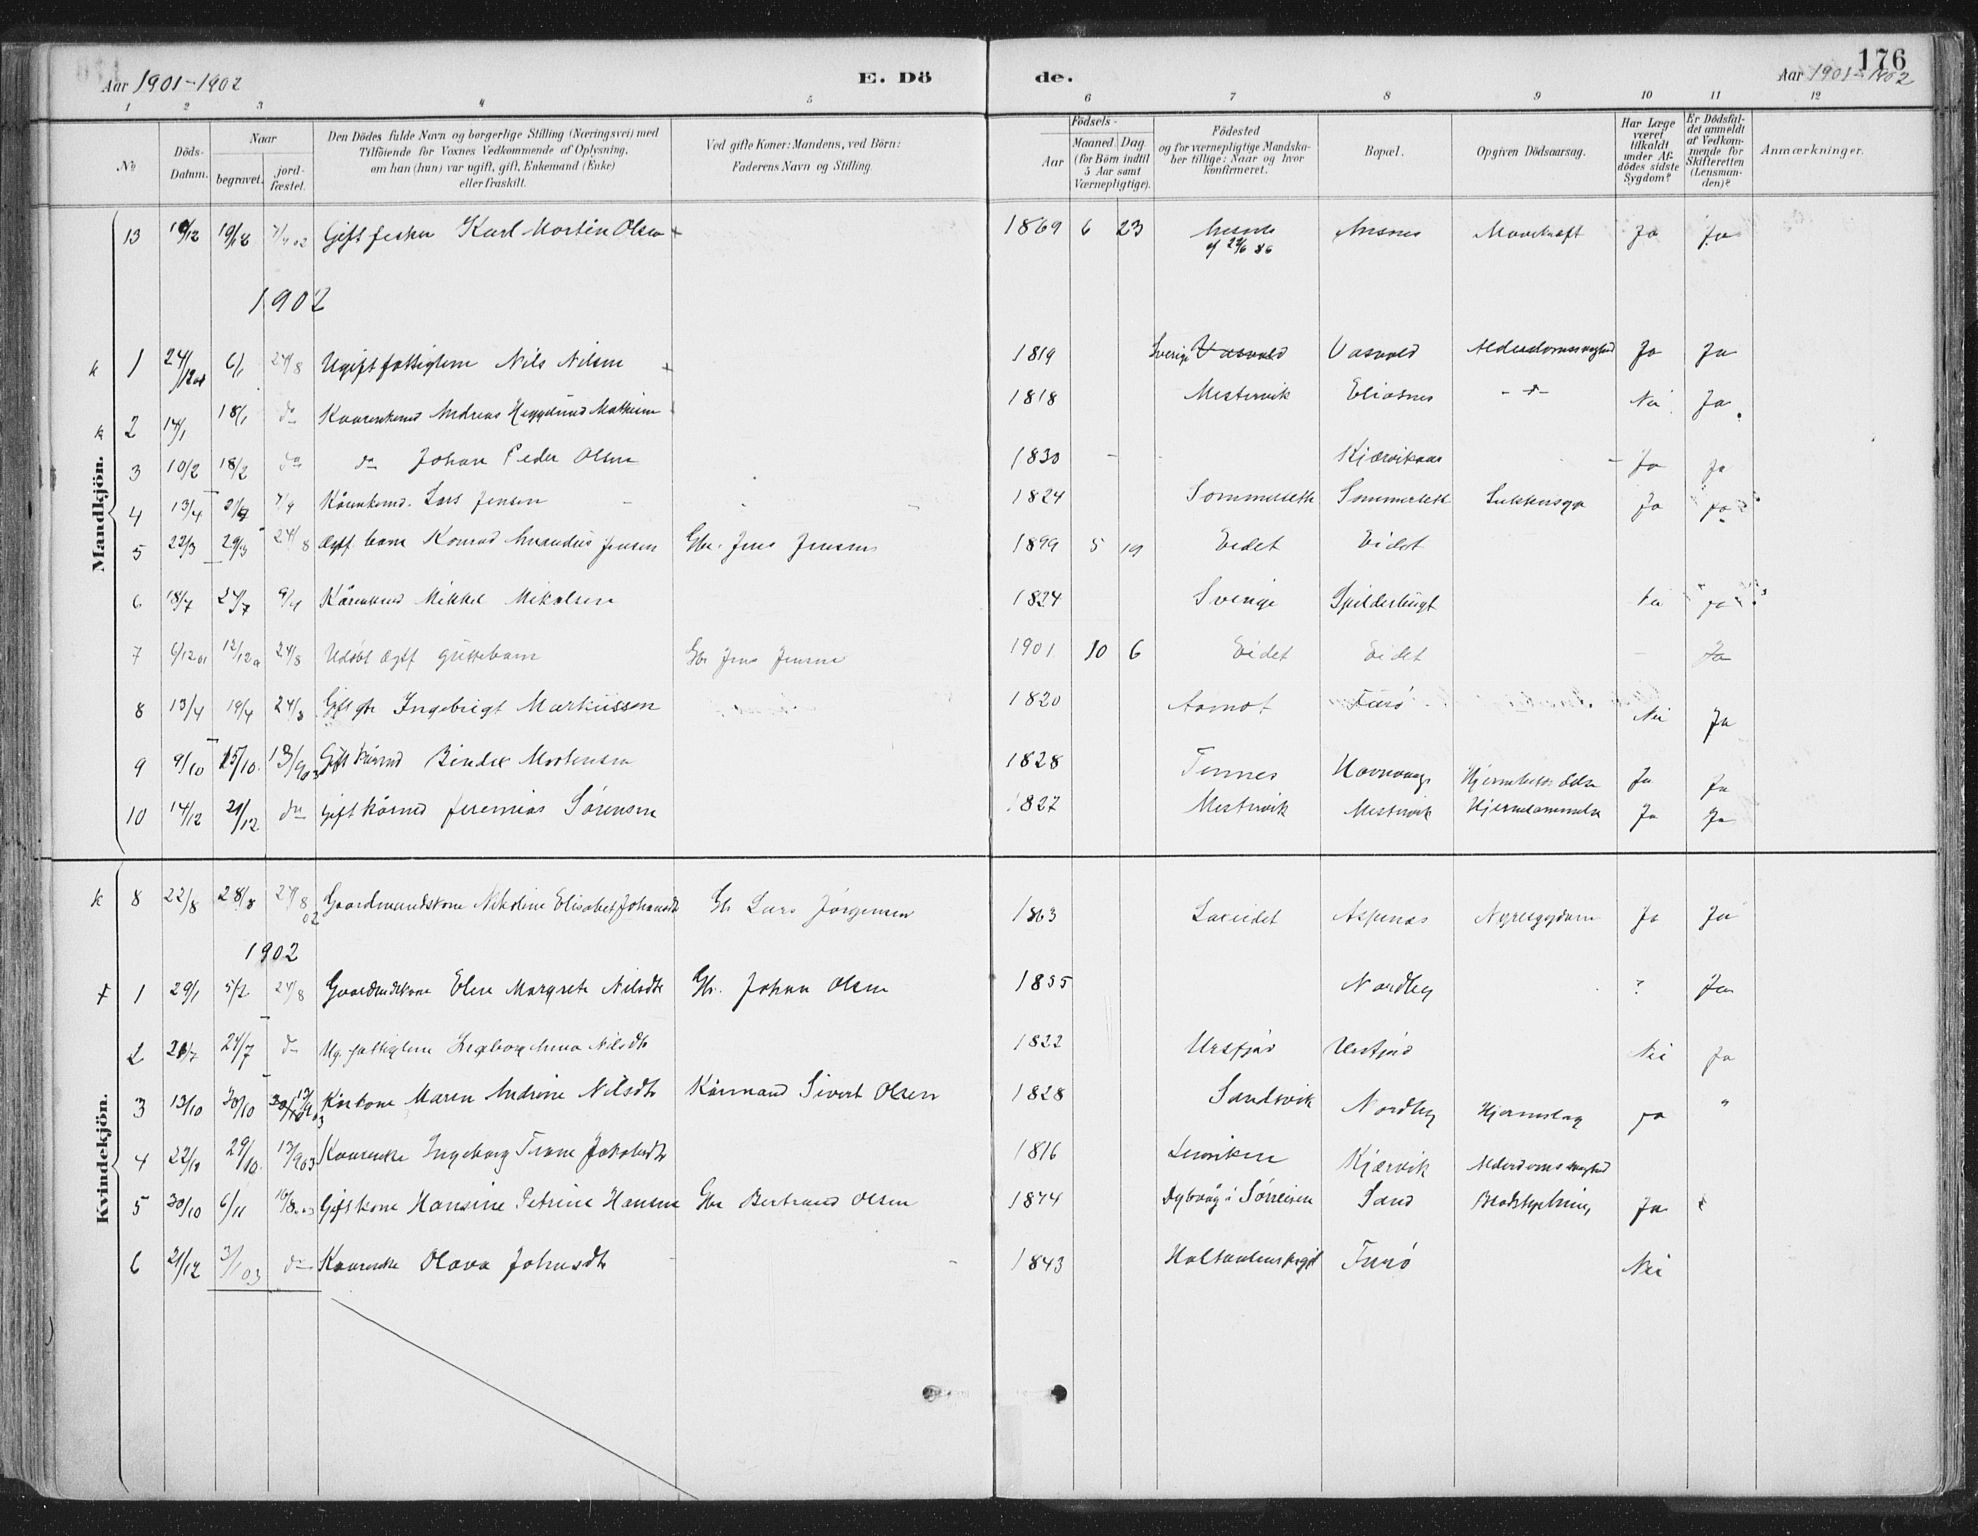 176
Aar 1901-1902 E. Dö de. Aar 1901-1902
1 2 3 4 5 6 7 8 9 10 11 12
No Döds-Datum. Naar begravet. jordfæstet. Den Dödes fulde Navn og borgerlige Stilling (Næringsvei) med Tilföiende for Voxnes Vedkommende af Oplysning, om han (hun) var ugift, gift, Enkemand (Enke) eller fraskilt. Ved gifte Koner: Mandens, ved Börn: Faderens Navn og Stilling. Födsels- Aar Maaned. Dag. (for Börn indtil 5 Aar samt Værnepligtige). Födested og for værnepligtige Mandskaber tillige: Naar og hvor konfirmeret. Bopæl. Opgiven Dödsaarsag. Har Læge været tilkaldt under Afdödes sidste Sygdom? Er Dödsfaldet anmeldt af Vedkommende for Skifteretten (Lensmanden)? Anmærkninger.
Mandkjön.
13 19/12 Gift fisker Karl Martin Olsen 1869 6 23 Ansnes Ja Ja
1902
k 1 24/12 01 6/1 24/8 Ugift fattiglem Nils Nilsen 1819 Sverige Vasvold Vasvold Alderdomssvaghed Ja Ja
k 2 14/1 18/1 do Kaarenkemd Andreas Heggelund Mathisen 1818 Mestervik Eliasnes - d - Nei Ja
3 10/2 18/2 do do Johan Peder Olsen 1830 Kjærvikaas Ja Ja
4 13/4 7/9 Kårenkemd. Lars Jensen 1824 Sommersette Sommersette Sukkersyge Ja Ja
5 22/3 29/3 24/8 Ægtf. barn Konrad Jensen Gbr. Jens Jensen 1899 5 19 Eidet Eidet
6 18/7 24/7 9/9 Kårenkemd Mikkel Mikalsen 1824 Sverige Spilderbugt Nei Ja
7 6/12 01 12/12 24/8 Udøbt Ægtf guttebarn Gbr Jens Jensen 1901 10 6 Eidet Eidet Ja
8 13/4 19/4 24/8 Gift gbr Ingebrigt Markussen 1820 Aamot Furø Nei Ja
9 9/10 15/10 13/9 03 Gift kårmd Bendik Mortensen 1828 Tennes Havnvaag Ja Ja
10 14/12 21/12 do Gift kårmd Jeremias Sørensen 1827 Mestervik Mestervik Ja Ja
Kvindekjön.
k 8 22/8 28/8 24/8 02 Gaardmandskone Nikoline Elisabet Johansdt Gb Lars Jørgensen 1863 Laxeidet Aspenes Nyresygdom Ja Ja
1902
1 29/1 5/2 24/8 Gaardmdskone Elen Margrete Nilsdt Gbr. Johan Olsen 1835 Nordby ? Ja
2 21/7 24/7 d Ug. fattiglem Ingeborg Anna Nilsdt 1822 Ursfjord Ursfjord Nei Ja
3 13/10 20/10 13/9 03 Kårkone Maren Andrine Nilsdt Kårmand Sivert Olsen 1828 Sandvik Nordby Hjerneslag Ja "
4 22/10 29/10 13/9 03 Kaarenke Ingeborg Trone Jakobsdt 1816 Lenviken Kjærvik Alderdoms svaghed
5 30/10 6/11 Gift kone Hansine Petrine Hansen Gbr Bertrand Olsen 1874 Dybvåg i Sørreisen Sand Blodstyrtning Ja
6 21/12 3/1 03 do Kaarenke Olava Johnsdt 1843 Furø Nei